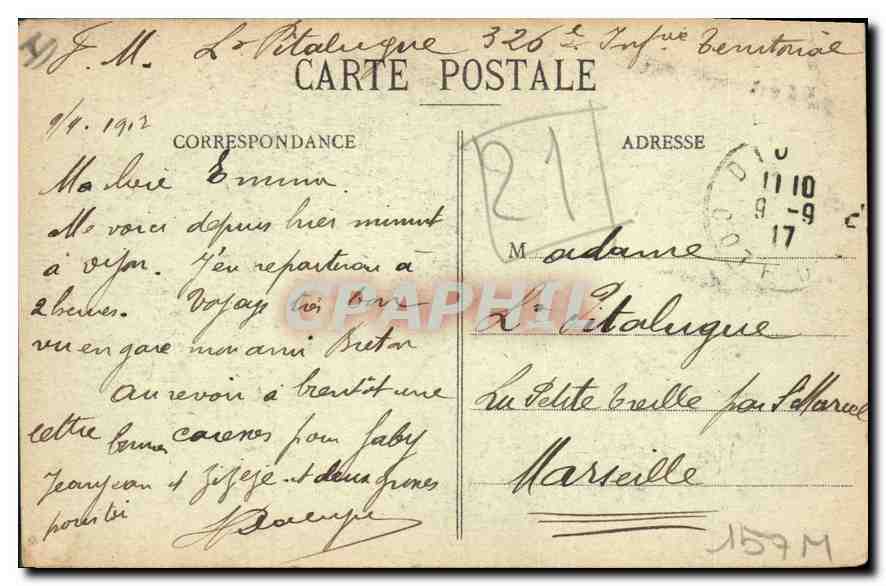 F. M. Lt Pitalugue 326e Infrie Territoriale
CARTE POSTALE
9/9. 1917
CORRESPONDANCE
ADRESSE
21
11 10
9 -9
17
Ma chère Emma
Me voici depuis hier minuit
à Dijon. J'en repartirai à
2 heures. Voyage très bon
vu en gare mon ami Breton
Au revoir à bientôt une
lettre bonnes caresses pour Gaby
Jeanjean et Zizeze et deux grosses
pour toi
Madame
Lt Pitalugue
La Petite Treille par St Marcel
Marseille
CPAPHIL
157M